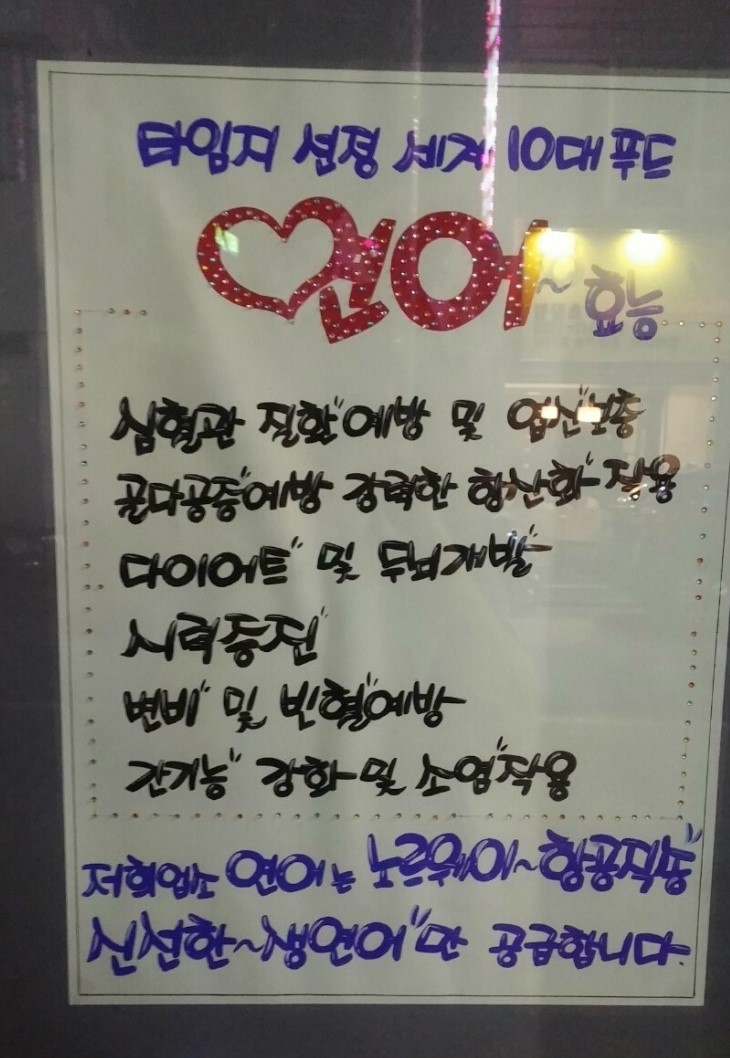 타임지 선정 세계 10대 푸드
연어~ 효능
심혈관 질환"예방 및 엽산"보충
골다공증"예방 강력한 항산화 작용
다이어트" 및 두뇌개발"
시력증진"
변비" 및 빈혈"예방
간기능" 강화 및 소염"작용
저희업소 연어는 노르웨이~항공직송"
신선한~생연어"만 공급합니다.